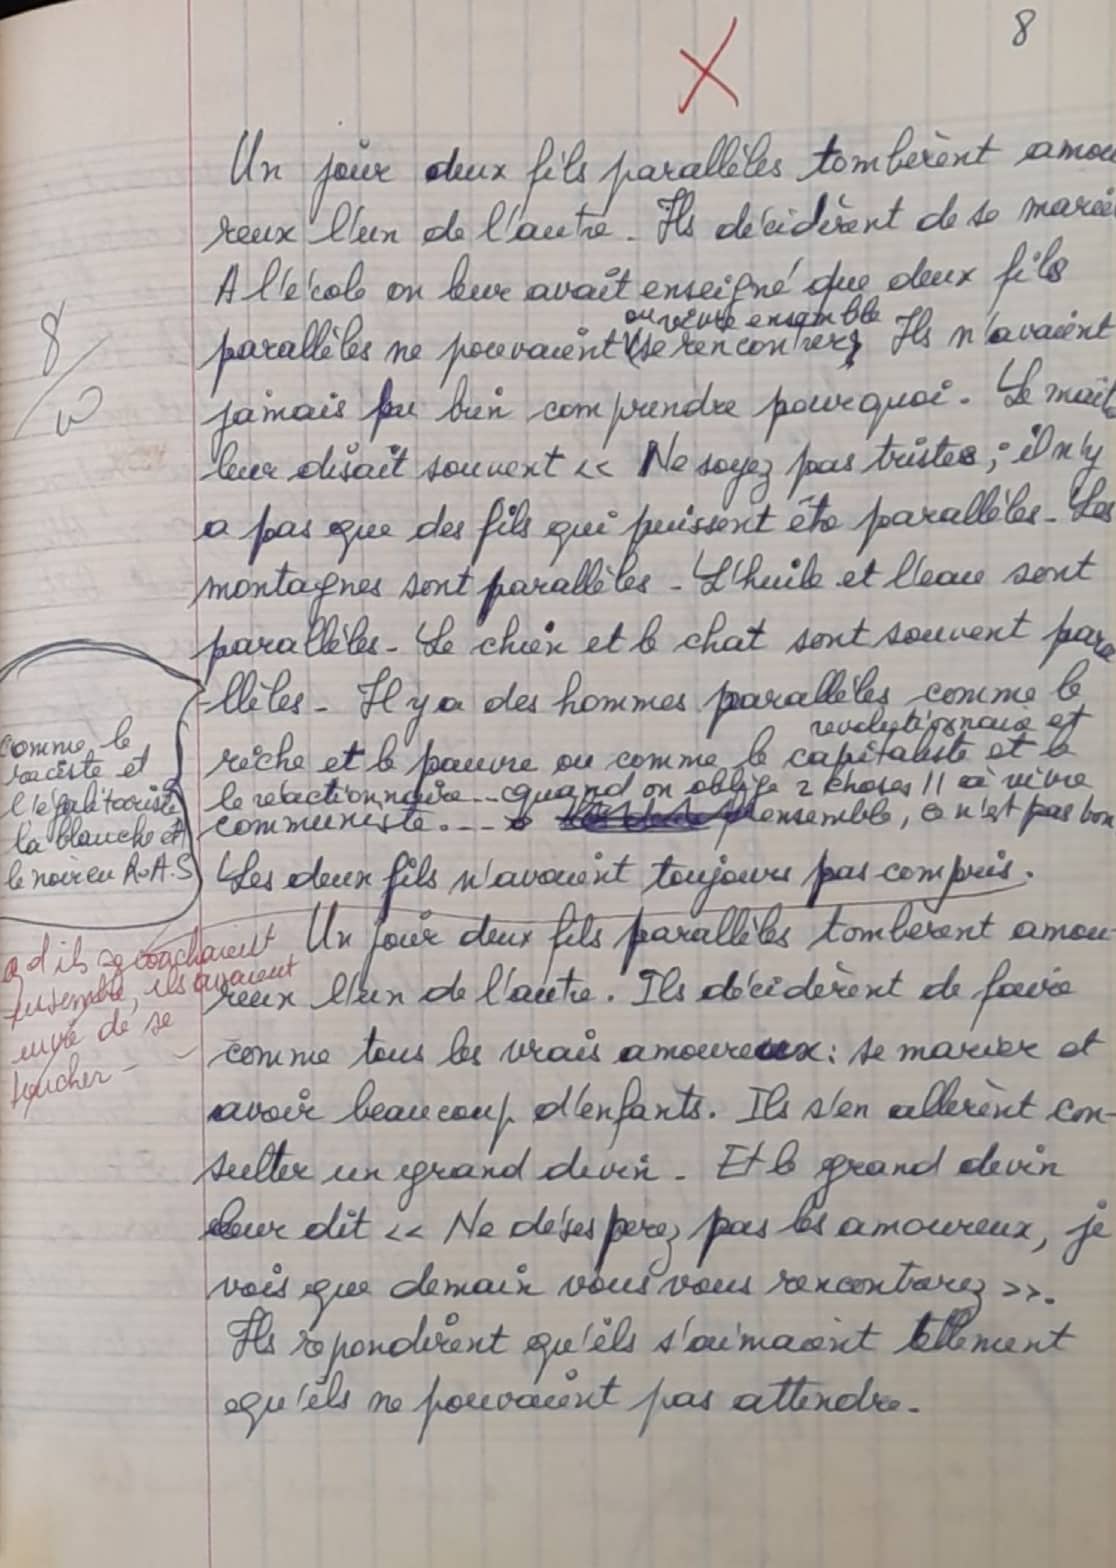 8
X
Un jour deux fils parallèles tombèrent amou
reux l'un de l'autre. Ils décidèrent de se marier
A l'école on leur avait enseigné que deux fils
ou vivre ensemble
parallèles ne pouvaient (se rencontrer). Ils n'avaient
jamais pu bien comprendre pourquoi. Le maît
leur disait souvent << Ne soyez pas tristes ; il n'y
a pas que des fils qui puissent être parallèles. Les
montagnes sont parallèles. L'huile et l'eau sont
parallèles. Le chien et le chat sont souvent para
-llèles. Il y a des hommes parallèles comme le
revolutionnaire et
riche et le pauvre ou comme le capitaliste et le
le réactionnaire... quand on oblige 2 choses // à vivre
communiste.... ensemble, ce n'est pas bon
Les deux fils n'avaient toujours pas compris.
Un jour deux fils parallèles tomberent amou-
reux l'un de l'autre. Ils décidèrent de faire
comme tous les vrais amoureux : se marier et
avoir beaucoup d'enfants. Ils s'en allèrent con-
sulter un grand devin. Et le grand devin
leur dit << Ne désesperez pas les amoureux, je
vois que demain vous vous rencontrerez >>.
Ils repondirent qu'ils s'aimaient tellement
qu'ils ne pouvaient pas attendre.
8/
comme le
raciste et
l'égalitariste
la blanche et
le noir en R.A.S
qd ils se couchaient
ensemble, ils avaient
envie de se
toucher -